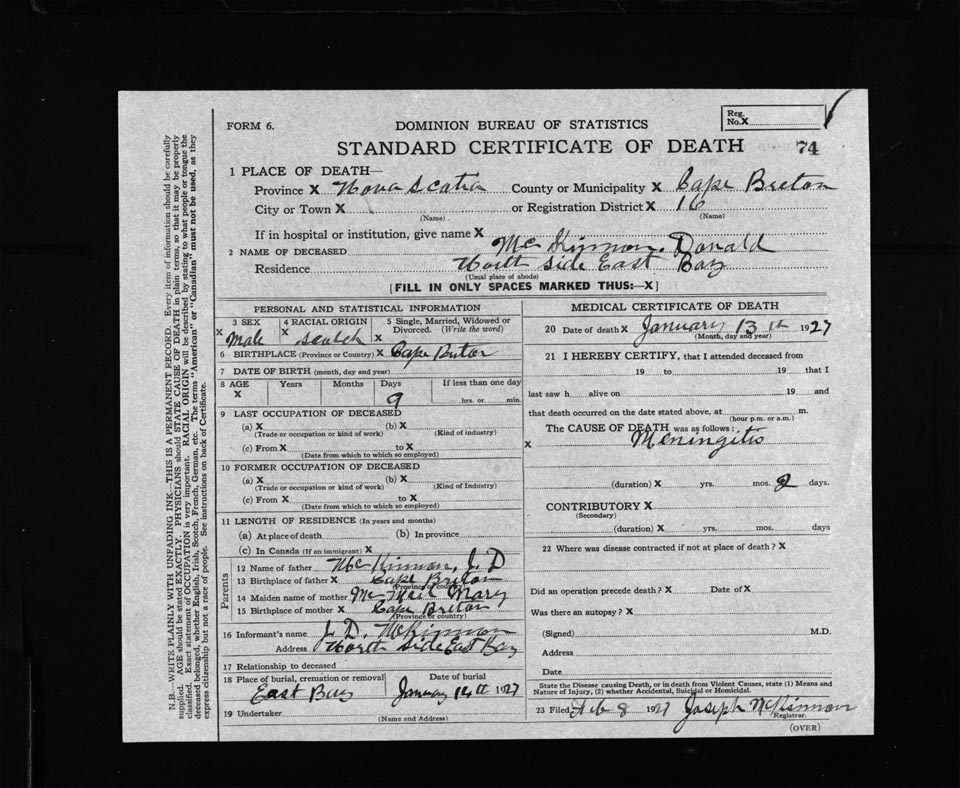 FORM 6.
DOMINION BUREAU OF STATISTICS
Reg. No. X
STANDARD CERTIFICATE OF DEATH 74
1 PLACE OF DEATH—
Province X Nova Scotia County or Municipality X Cape Breton
City or Town X (Name) or Registration District X 16 (Name)
If in hospital or institution, give name X
2 NAME OF DECEASED McKinnon, Donald
Residence North Side East Bay
(Usual place of abode)
[FILL IN ONLY SPACES MARKED THUS:—X]
PERSONAL AND STATISTICAL INFORMATION
3 SEX X Male 4 RACIAL ORIGIN X Scotch 5 Single, Married, Widowed or Divorced. (Write the word) X
6 BIRTHPLACE (Province or Country) X Cape Breton
7 DATE OF BIRTH (month, day and year)
8 AGE X Years Months Days 9 If less than one day hrs. or min.
9 LAST OCCUPATION OF DECEASED
(a) X (b) X
(Trade or occupation or kind of work) (Kind of industry)
(c) From X to X
(Date from which to which so employed)
10 FORMER OCCUPATION OF DECEASED
(a) X (b) X
(Trade or occupation or kind of work) (Kind of Industry)
(c) From X to X
(Date from which to which so employed)
11 LENGTH OF RESIDENCE (In years and months)
(a) At place of death (b) In province
(c) In Canada (If an immigrant) X
Parents
12 Name of father McKinnon, J. D
13 Birthplace of father X Cape Breton
(Province or country)
14 Maiden name of mother Mary
15 Birthplace of mother X Cape Breton
(Province or country)
16 Informant's name J. D. McKinnon
Address North Side East Bay
17 Relationship to deceased
18 Place of burial, cremation or removal Date of burial
East Bay January 14th 1927
19 Undertaker
(Name and Address)
MEDICAL CERTIFICATE OF DEATH
20 Date of death X January 13th 1927
(Month, day and year)
21 I HEREBY CERTIFY, that I attended deceased from
19 to 19 that I
last saw h alive on 19 and
that death occurred on the date stated above, at m.
(hour p.m. or a.m.)
The CAUSE OF DEATH was as follows:
X Meningitis
(duration) X yrs. mos. 2 days.
CONTRIBUTORY X
(Secondary)
(duration) X yrs. mos. days
22 Where was disease contracted if not at place of death? X
Did an operation precede death? X Date of X
Was there an autopsy? X
(Signed) M.D.
Address
Date
State the Disease causing Death, or in death from Violent Causes, state (1) Means and
Nature of Injury, (2) whether Accidental, Suicidal or Homicidal.
23 Filed Feb 8 1927 Joseph McKinnon
Registrar.
(OVER)
N.B.—WRITE PLAINLY WITH UNFADING INK—THIS IS A PERMANENT RECORD. Every item of information should be carefully
supplied. AGE should be stated EXACTLY. PHYSICIANS should STATE CAUSE OF DEATH in plain terms, so that it may be properly
classified. Exact statement of OCCUPATION is very important. RACIAL ORIGIN will be described by stating to what people or tongue the
deceased belonged, whether English, Irish, Scotch, French, German, etc. The terms "American" or "Canadian" must not be used, as they
express citizenship but not a race of people. See instructions on back of Certificate.